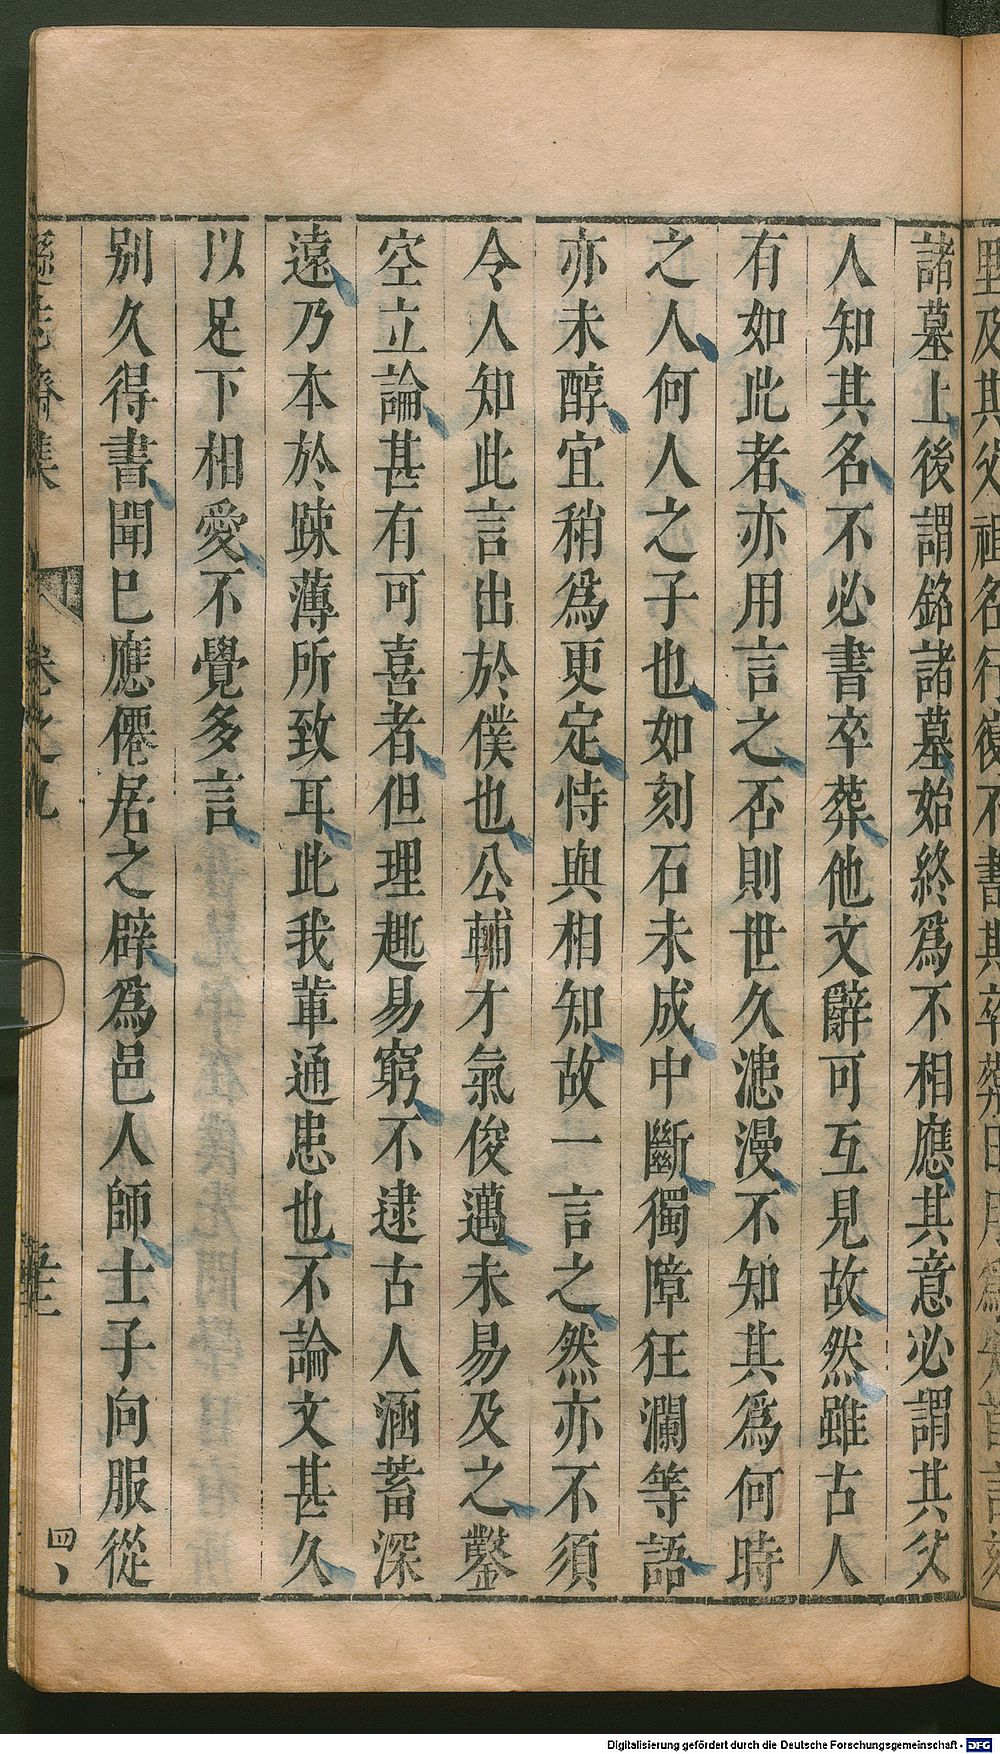 諸墓上後謂銘諸墓始終爲不相應其意必謂其父
人知其名不必書卒葬他文辭可互見故然雖古人
有如此者亦用言之否則世久漶漫不知其爲何時
之人何人之子也如刻石未成中斷獨障狂瀾等語
亦未醇宜稍爲更定恃與相知故一言之然亦不須
令人知此言出於僕也公輔才氣俊邁未易及之鑿
空立論甚有可喜者但理趣易窮不逮古人涵蓄深
遠乃本於踈薄所致耳此我軰通患也不論文甚久
以足下相愛不覺多言
別久得書聞已應僊居之辟爲邑人師士子向服從
遜志齋集 卷之九 四
Digitalisierung gefördert durch die Deutsche Forschungsgemeinschaft - DFG